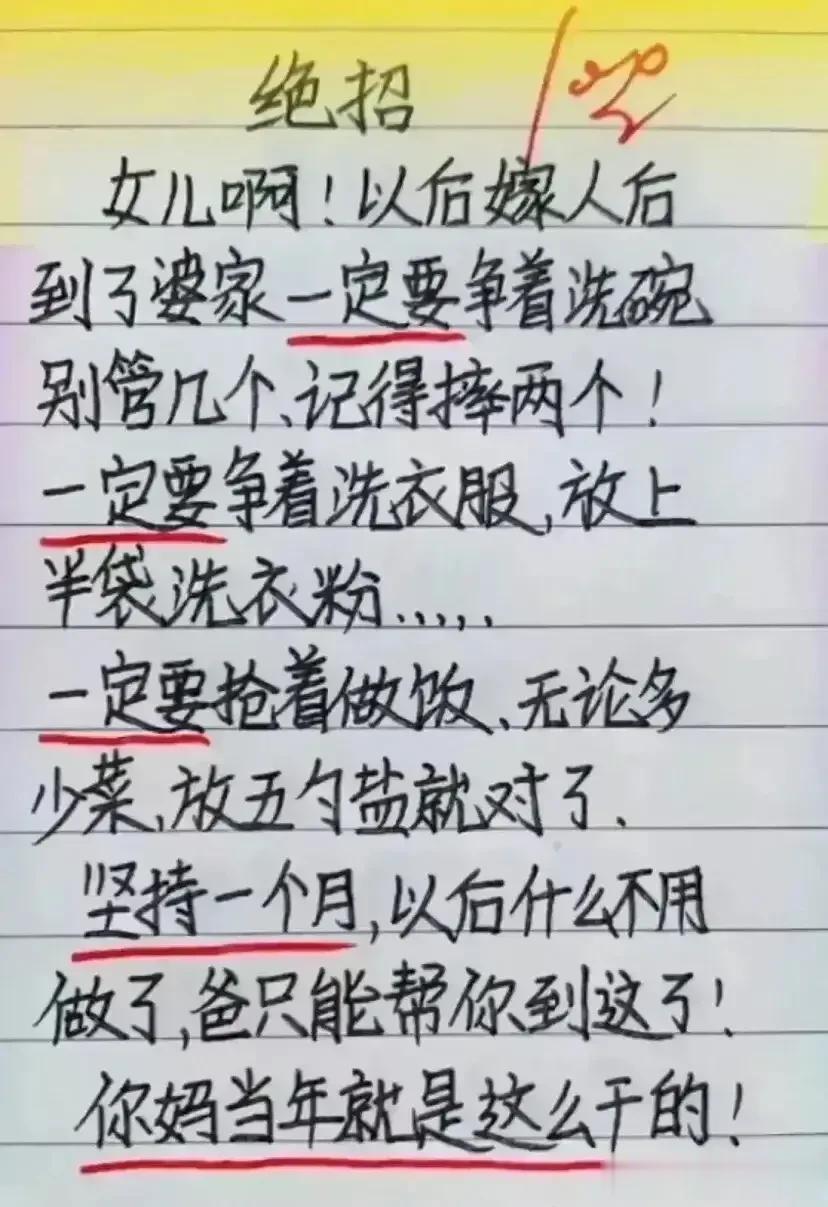 绝招
女儿啊！以后嫁人后
到了婆家一定要争着洗碗
别管几个、记得摔两个！
一定要争着洗衣服,放上
半袋洗衣粉.....
一定要抢着做饭、无论多
少菜,放五勺盐就对了.
坚持一个月,以后什么不用
做了,爸只能帮你到这了!
你妈当年就是这么干的!